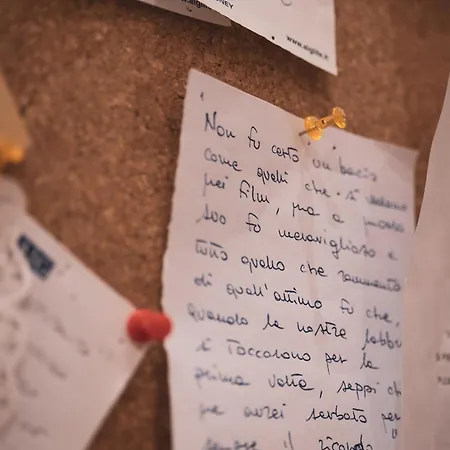 www.aigille.it
Non fu certo un bacio
come quelli che si vedono
nei film, ma a modo
suo fu meraviglioso e
tutto quello che rammento
di quell'attimo fu che,
quando le nostre labbra
si toccarono per la
prima volta, seppi che
ne avrei serbato per
sempre il ricordo